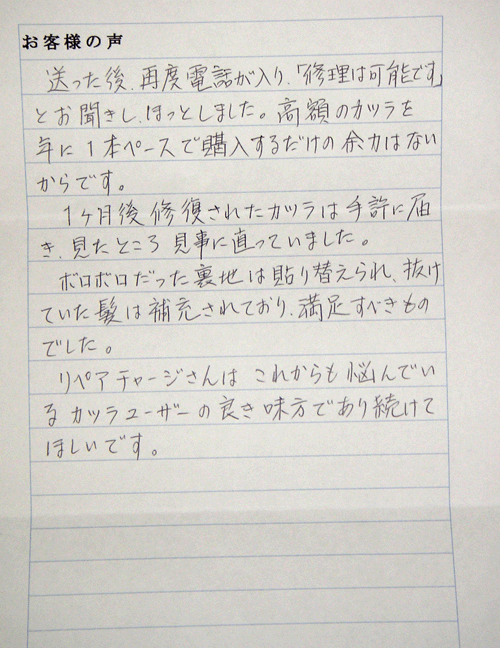 お客様の声
送った後、再度電話が入り、「修理は可能です」
とお聞きし、ほっとしました。高額のカツラを
年に1本ペースで購入するだけの余力はない
からです。
1ヶ月後修復されたカツラは手許に届
き、見たところ見事に直っていました。
ボロボロだった裏地は貼り替えられ、抜け
ていた髪は補充されており、満足すべきもの
でした。
リペアチャージさんはこれからも悩んでい
るカツラユーザーの良き味方であり続けて
ほしいです。